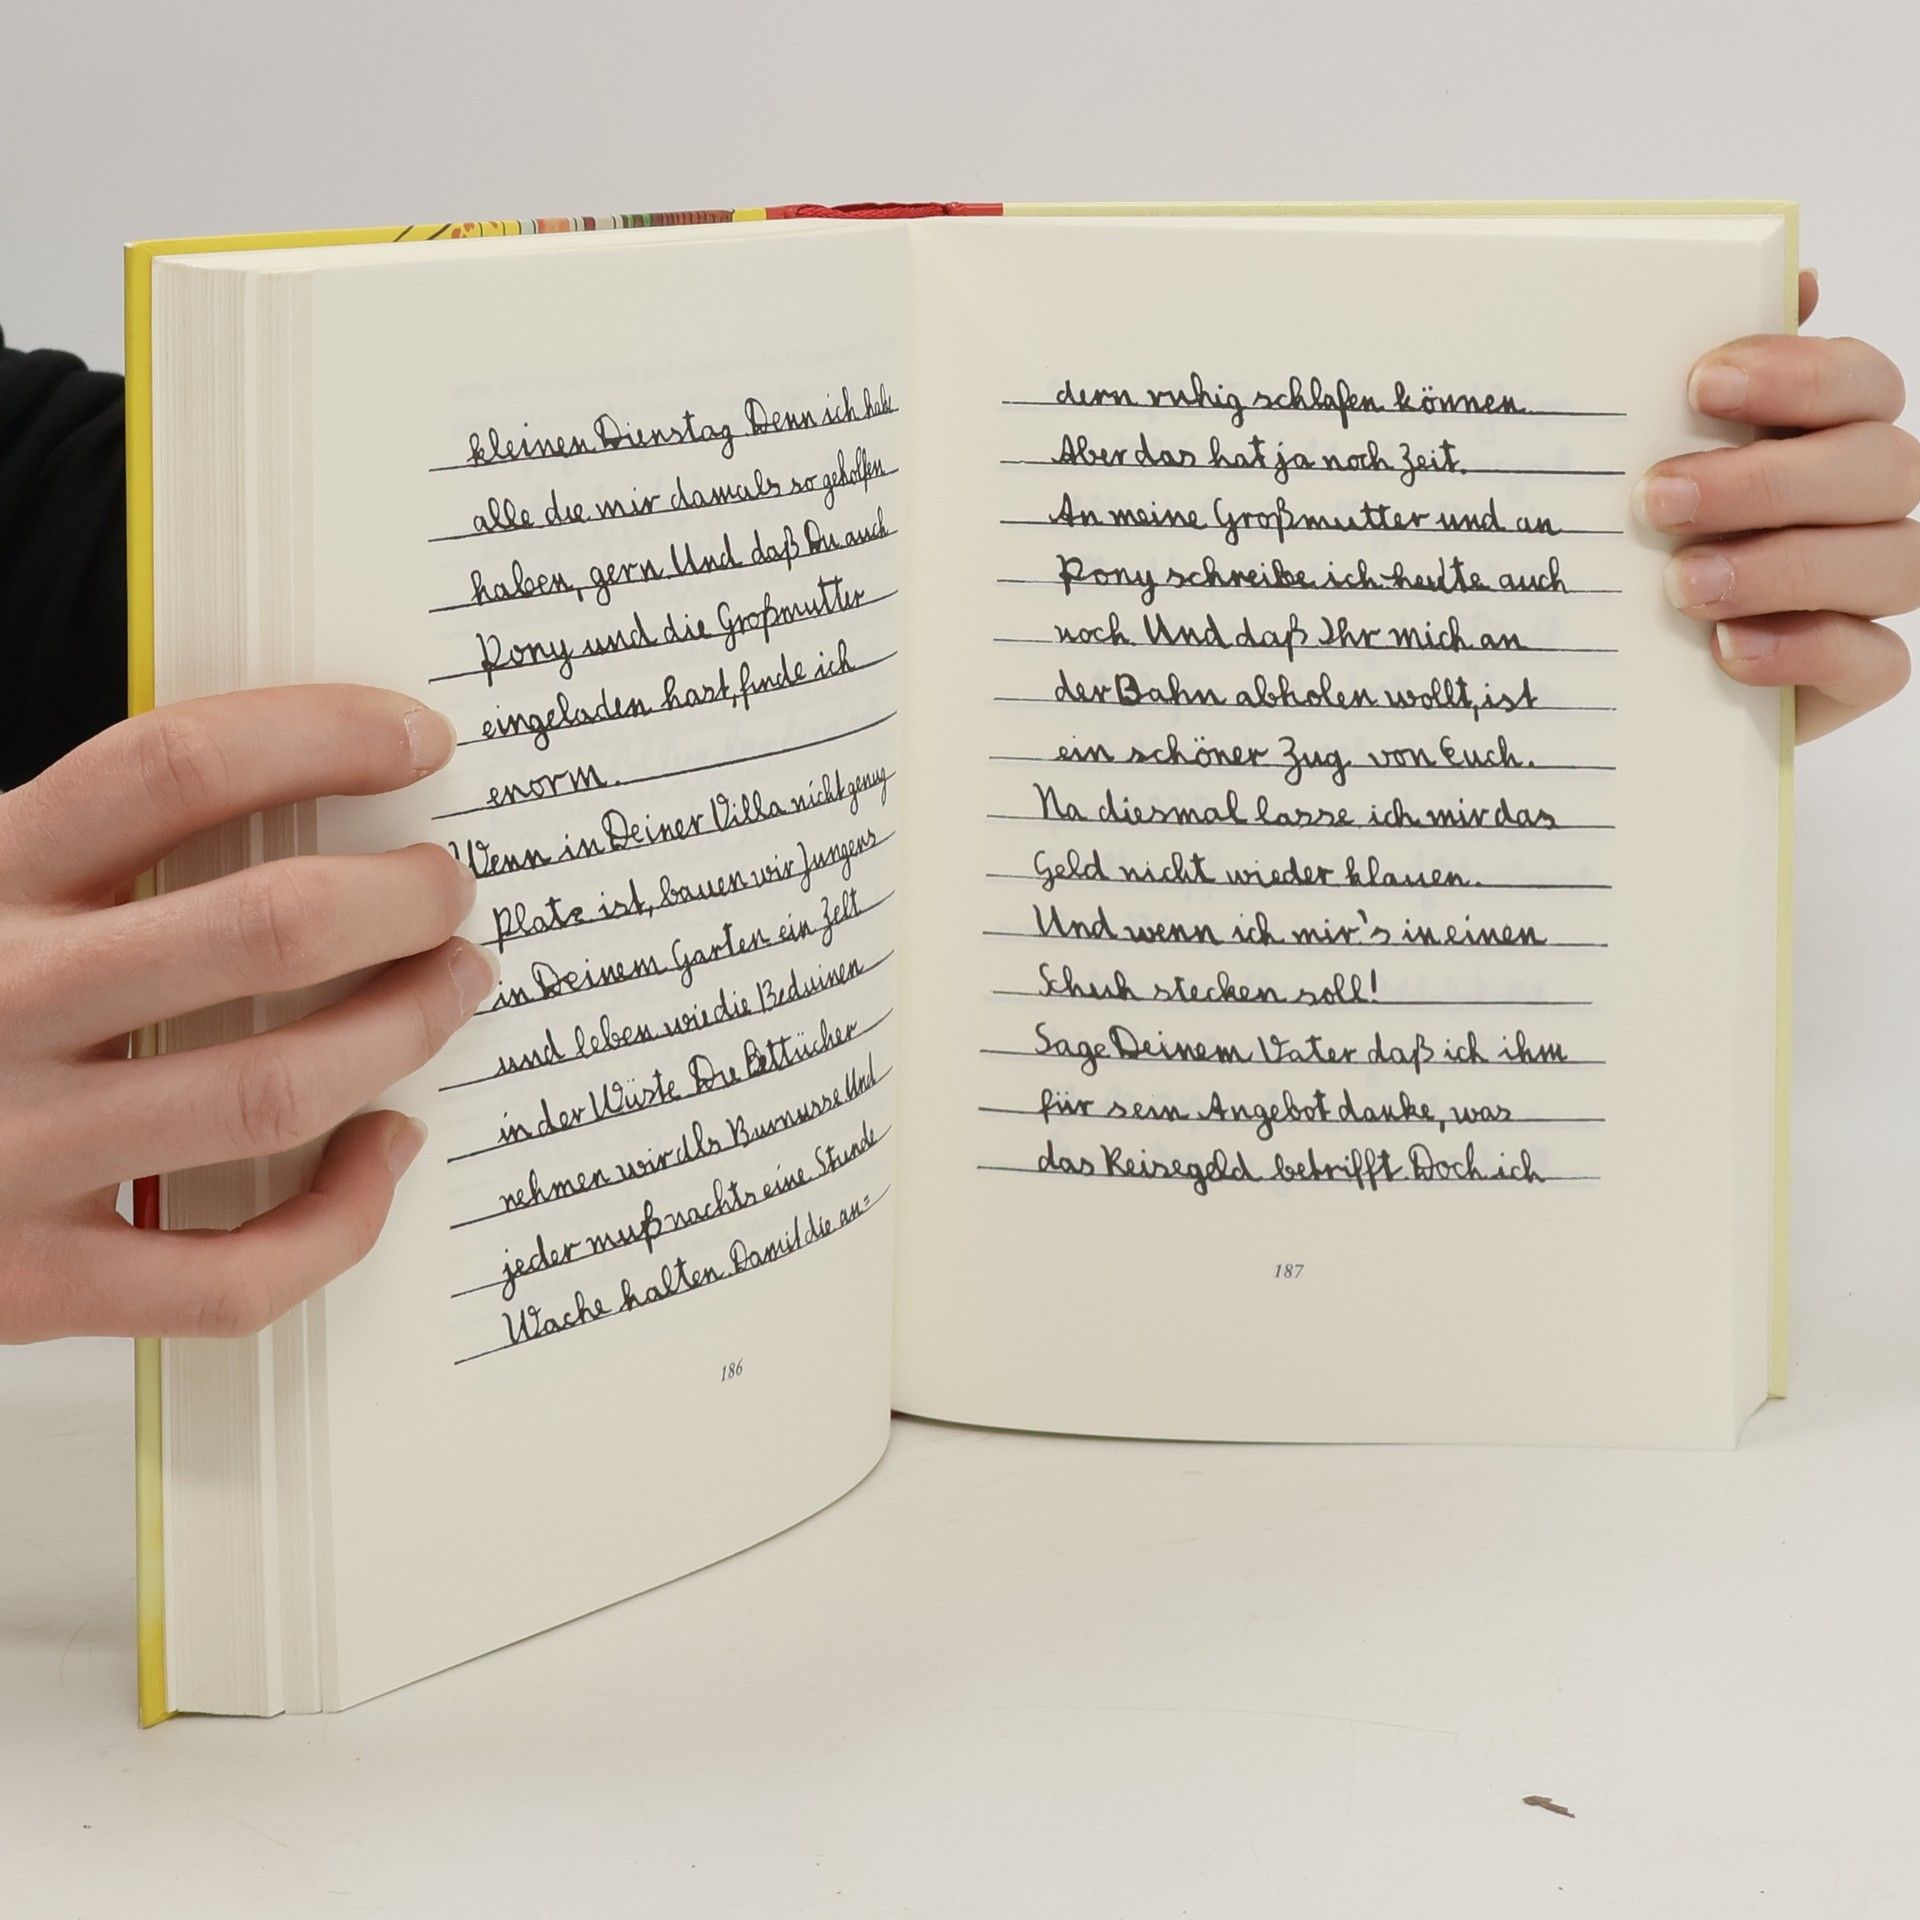 kleinen Dienstag. Denn ich habe
alle die mir damals so geholfen
haben, gern. Und daß Du auch
Pony und die Großmutter
eingeladen hast, finde ich
enorm.
Wenn in Deiner Villa nicht genug
Platz ist, bauen wir Jungens
in Deinem Garten ein Zelt
und leben wie die Beduinen
in der Wüste. Die Bettücher
nehmen wir als Burnusse. Und
jeder muß nachts eine Stunde
Wache halten. Damit die an=
186
dern ruhig schlafen können.
Aber das hat ja noch Zeit.
An meine Großmutter und an
Pony schreibe ich heute auch
noch. Und daß Ihr mich an
der Bahn abholen wollt, ist
ein schöner Zug von Euch.
Na diesmal lasse ich mir das
Geld nicht wieder klauen.
Und wenn ich mir's in einen
Schuh stecken soll!
Sage Deinem Vater daß ich ihm
für sein Angebot danke, was
das Reisegeld betrifft. Doch ich
187